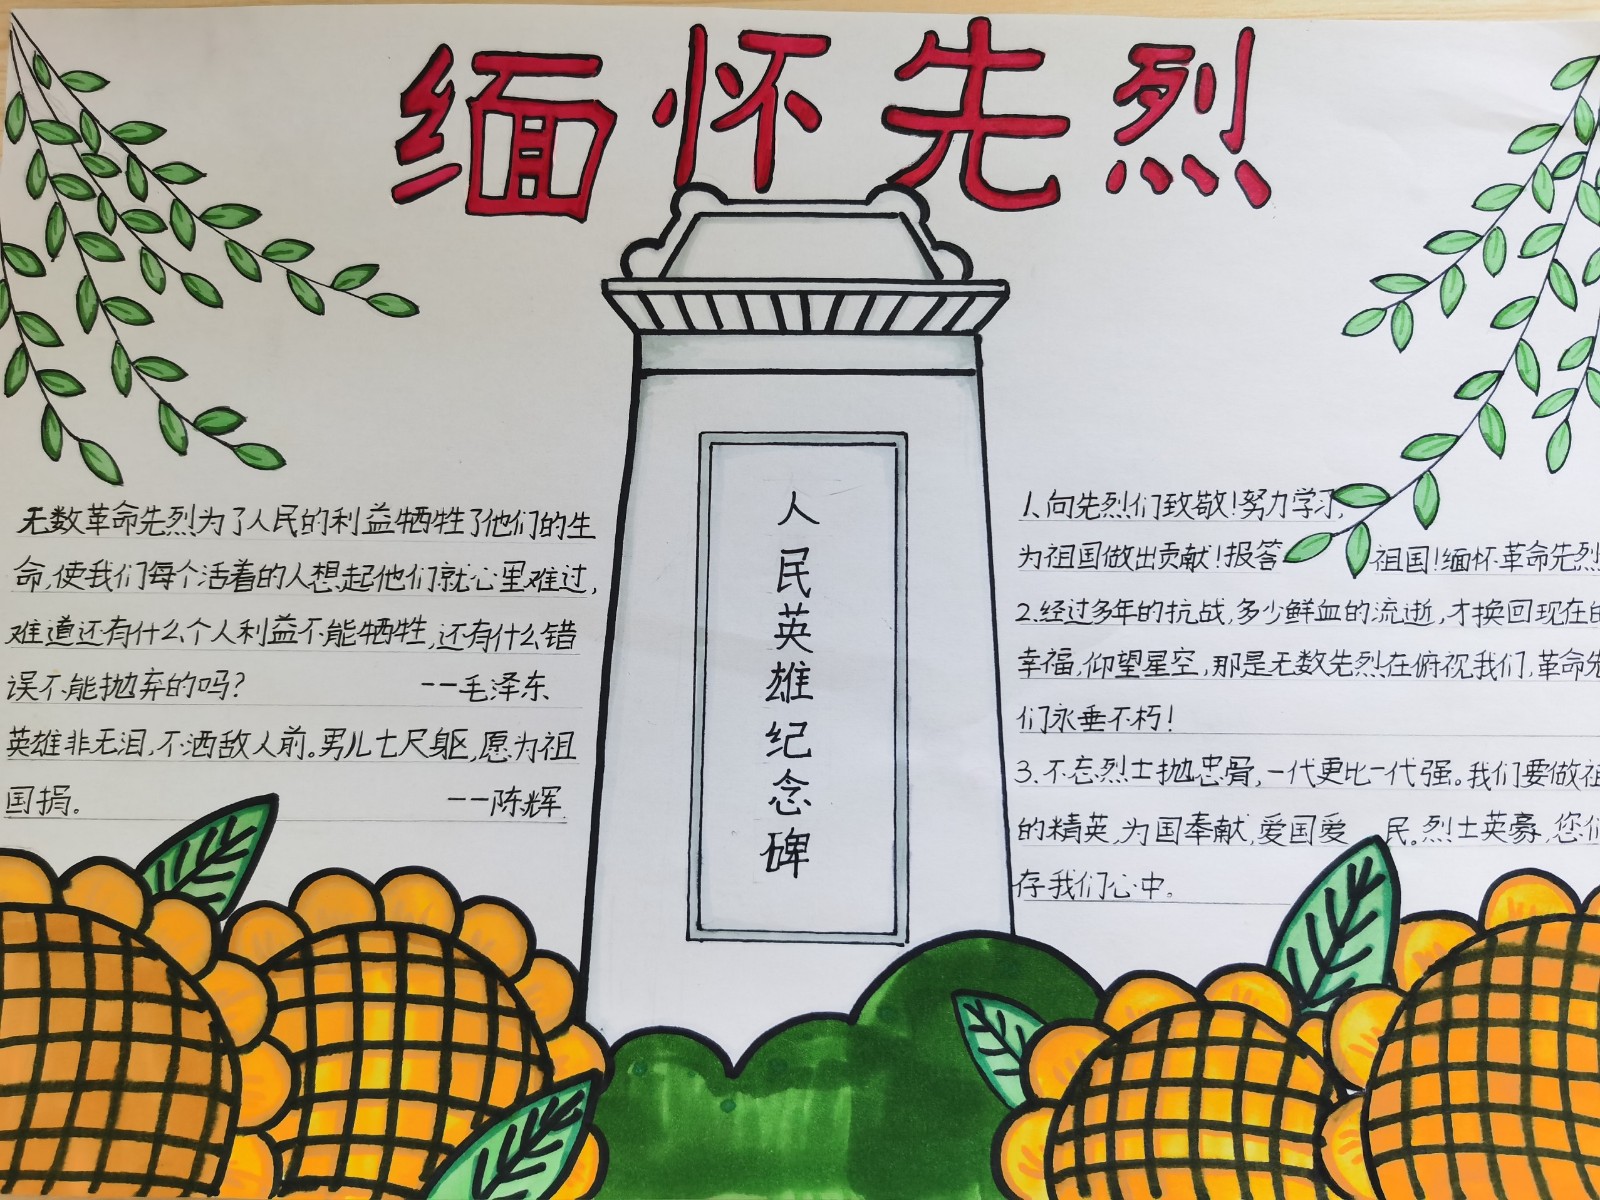 缅怀先烈
人民英雄纪念碑
无数革命先烈为了人民的利益牺牲了他们的生
命,使我们每个活着的人想起他们就心里难过,
难道还有什么个人利益不能牺牲,还有什么错
误不能抛弃的吗?
--毛泽东
英雄非无泪,不洒敌人前。男儿七尺躯,愿为祖
国捐。
--陈辉
1、向先烈们致敬!努力学习,
为祖国做出贡献!报答 祖国!缅怀革命先烈
2.经过多年的抗战,多少鲜血的流逝,才换回现在的
幸福,仰望星空,那是无数先烈在俯视我们,革命先
们永垂不朽!
3.不忘烈士抛忠骨,一代更比一代强。我们要做祖
的精英,为国奉献,爱国爱 民。烈士英豪,您们
存我们心中。